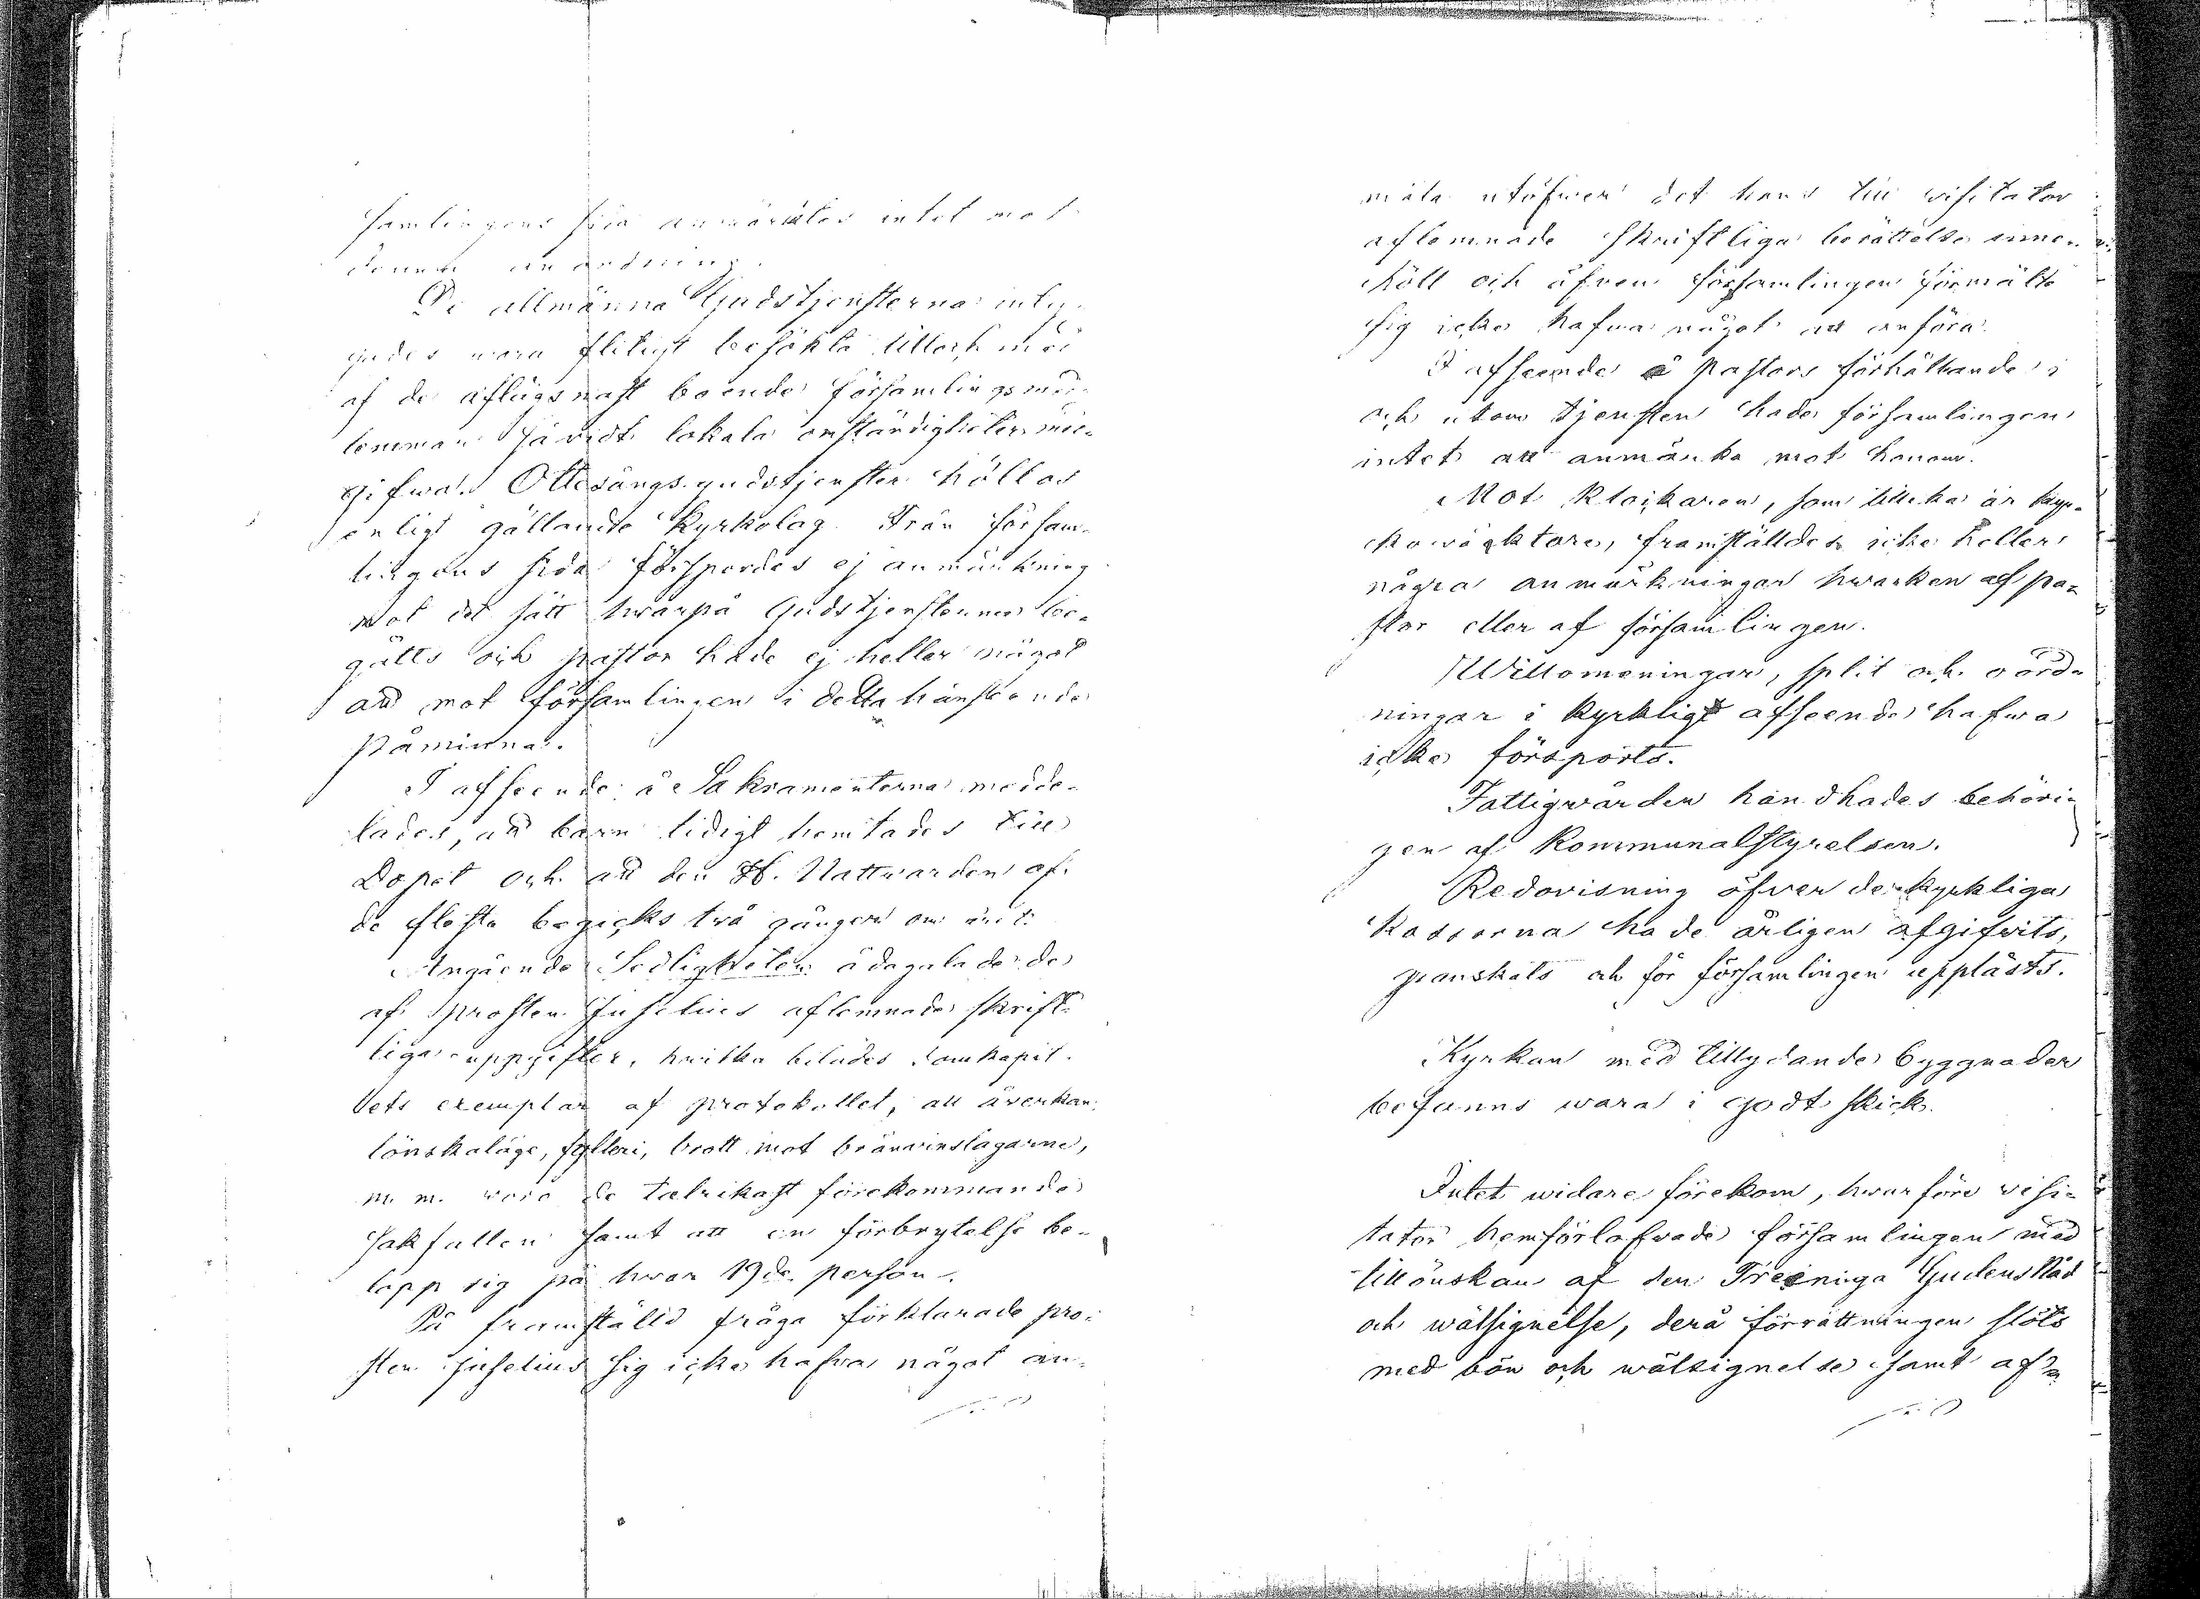 samlingens sida anmärktes intet mot
denna anordning.
De allmänna Gudstjensterna inty-
gades wara flitigt besökta tilloch med
af de aflägsnast boende församlingsmed-
lemmar så vidt lokala omständigheter med-
gifwa. Ottesångsgudstjenster hållas
enligt gällande Kyrkolag. Från försam-
lingens sida försportdes ej anmärkning
mot det sätt hwarpå Gudstjensterna be-
gåtts och pastor hade ej heller något
att mot församlingen i detta hänseende
påminna.
I afseende å Sakramenterna medde-
lades, att barn tidigt hemtades till
Dopet och att den H. Nattwarden af
de flesta begicks två gånger om året.
Angående Sedligheten ådagalade de
af prosten Juselius aflemnade skrift-
liga uppgifter, hwilka bilades Domkapit-
lets exemplar af protokollet, att åverkan,
lönskaläge, fylleri, brott mot bränvinslagarne,
m. m. woro de talrikast förekommande
sakfallen samt att en förbrytelse be-
löpp sig på hwar 19de person.
På framstäld fråga förklarade pro-
sten Juselius sig icke hafva något an-
märka utöfwer det hans till visitator
aflemnade skriftliga berättelse inne-
höll och äfven församlingen förmälte
sig icke hafwa något att anföra.
I afseende å pastors förhållande i
och utom tjensten hade församlingen
intet att anmärka mot honom.
Mot klockaren, som tillika är kyr-
kowäktare, framställdes icke heller
några anmärkningar hwarken af pa-
stor eller af församlingen.
Willomeningar, split och oord-
ningar i kyrkligt afseende hafwa
icke försports.
Fattigwården handhades behöri-
gen af Kommunalstyrelsen.
Redovisning öfver de kyrkliga
kassorna hade årligen afgifwits,
granskats och för församlingen upplästs.
Kyrkan med tillydande byggnader
befanns wara i godt skick.
Intet widare förekom, hwarföre visi-
tator hemförlofwade församlingen med
tillönskan af den Treeniga Gudens Nåd
och wälsignelse, derå förrättningen slöts
med bön och wälsignelse samt af-